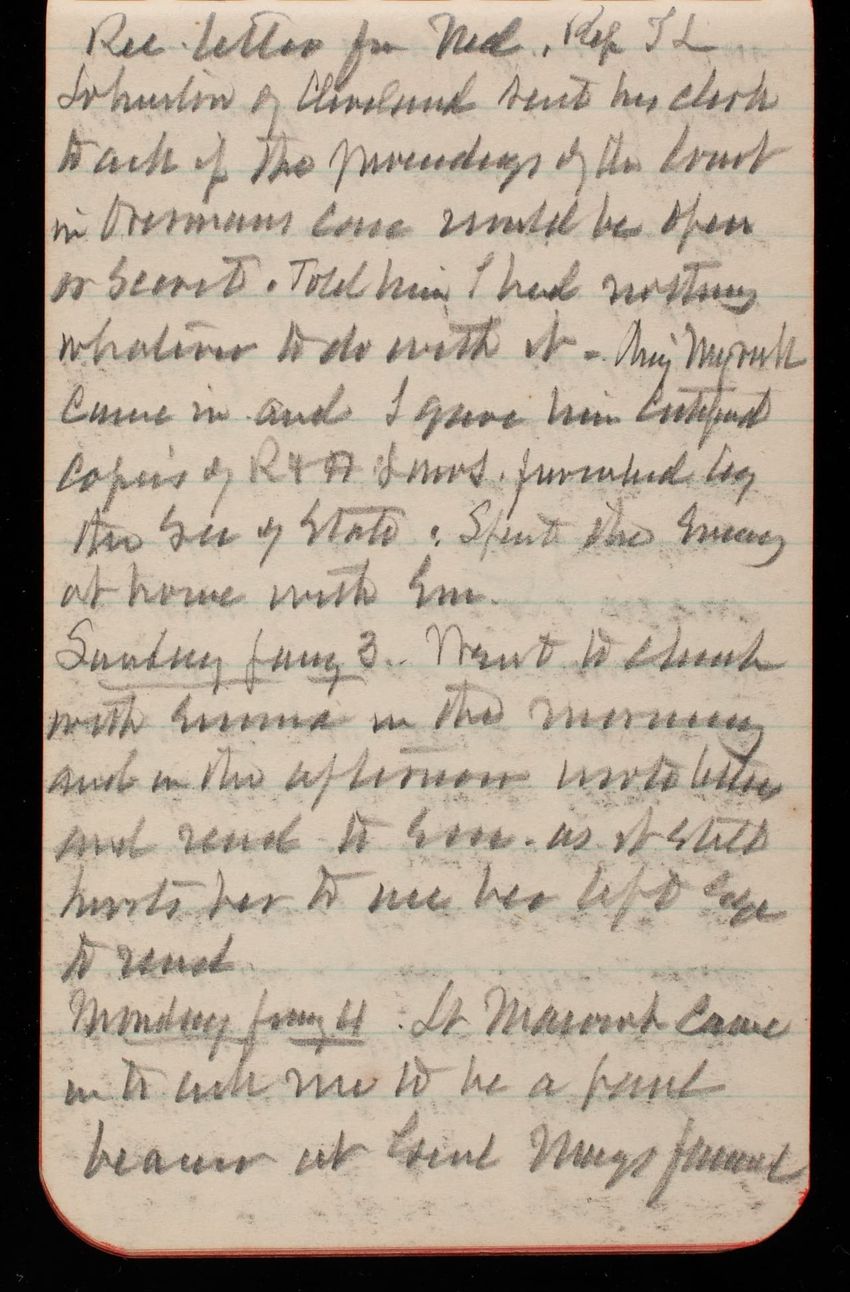 Rec letter fm Ned. Rep T L
Johnston of Cleveland sent his clerk
to ask if the proceedings of the Court
in case would be open
or Secret. Told him I had nothing
whatever to do with it -
Came in and I gave him Certified
Copies of R Laws. furnished by
the Sec of State. Spent the Evening
at home with Em.
Sunday Jany 3. Went to church
with Emma in the morning
and in the afternoon wrote letters
and read to Em. as it still
hurts her to use her left Eye
to read
Monday Jany 4. Lt came
in to ask me to be a paul
bearer at Genl Meigs funeral